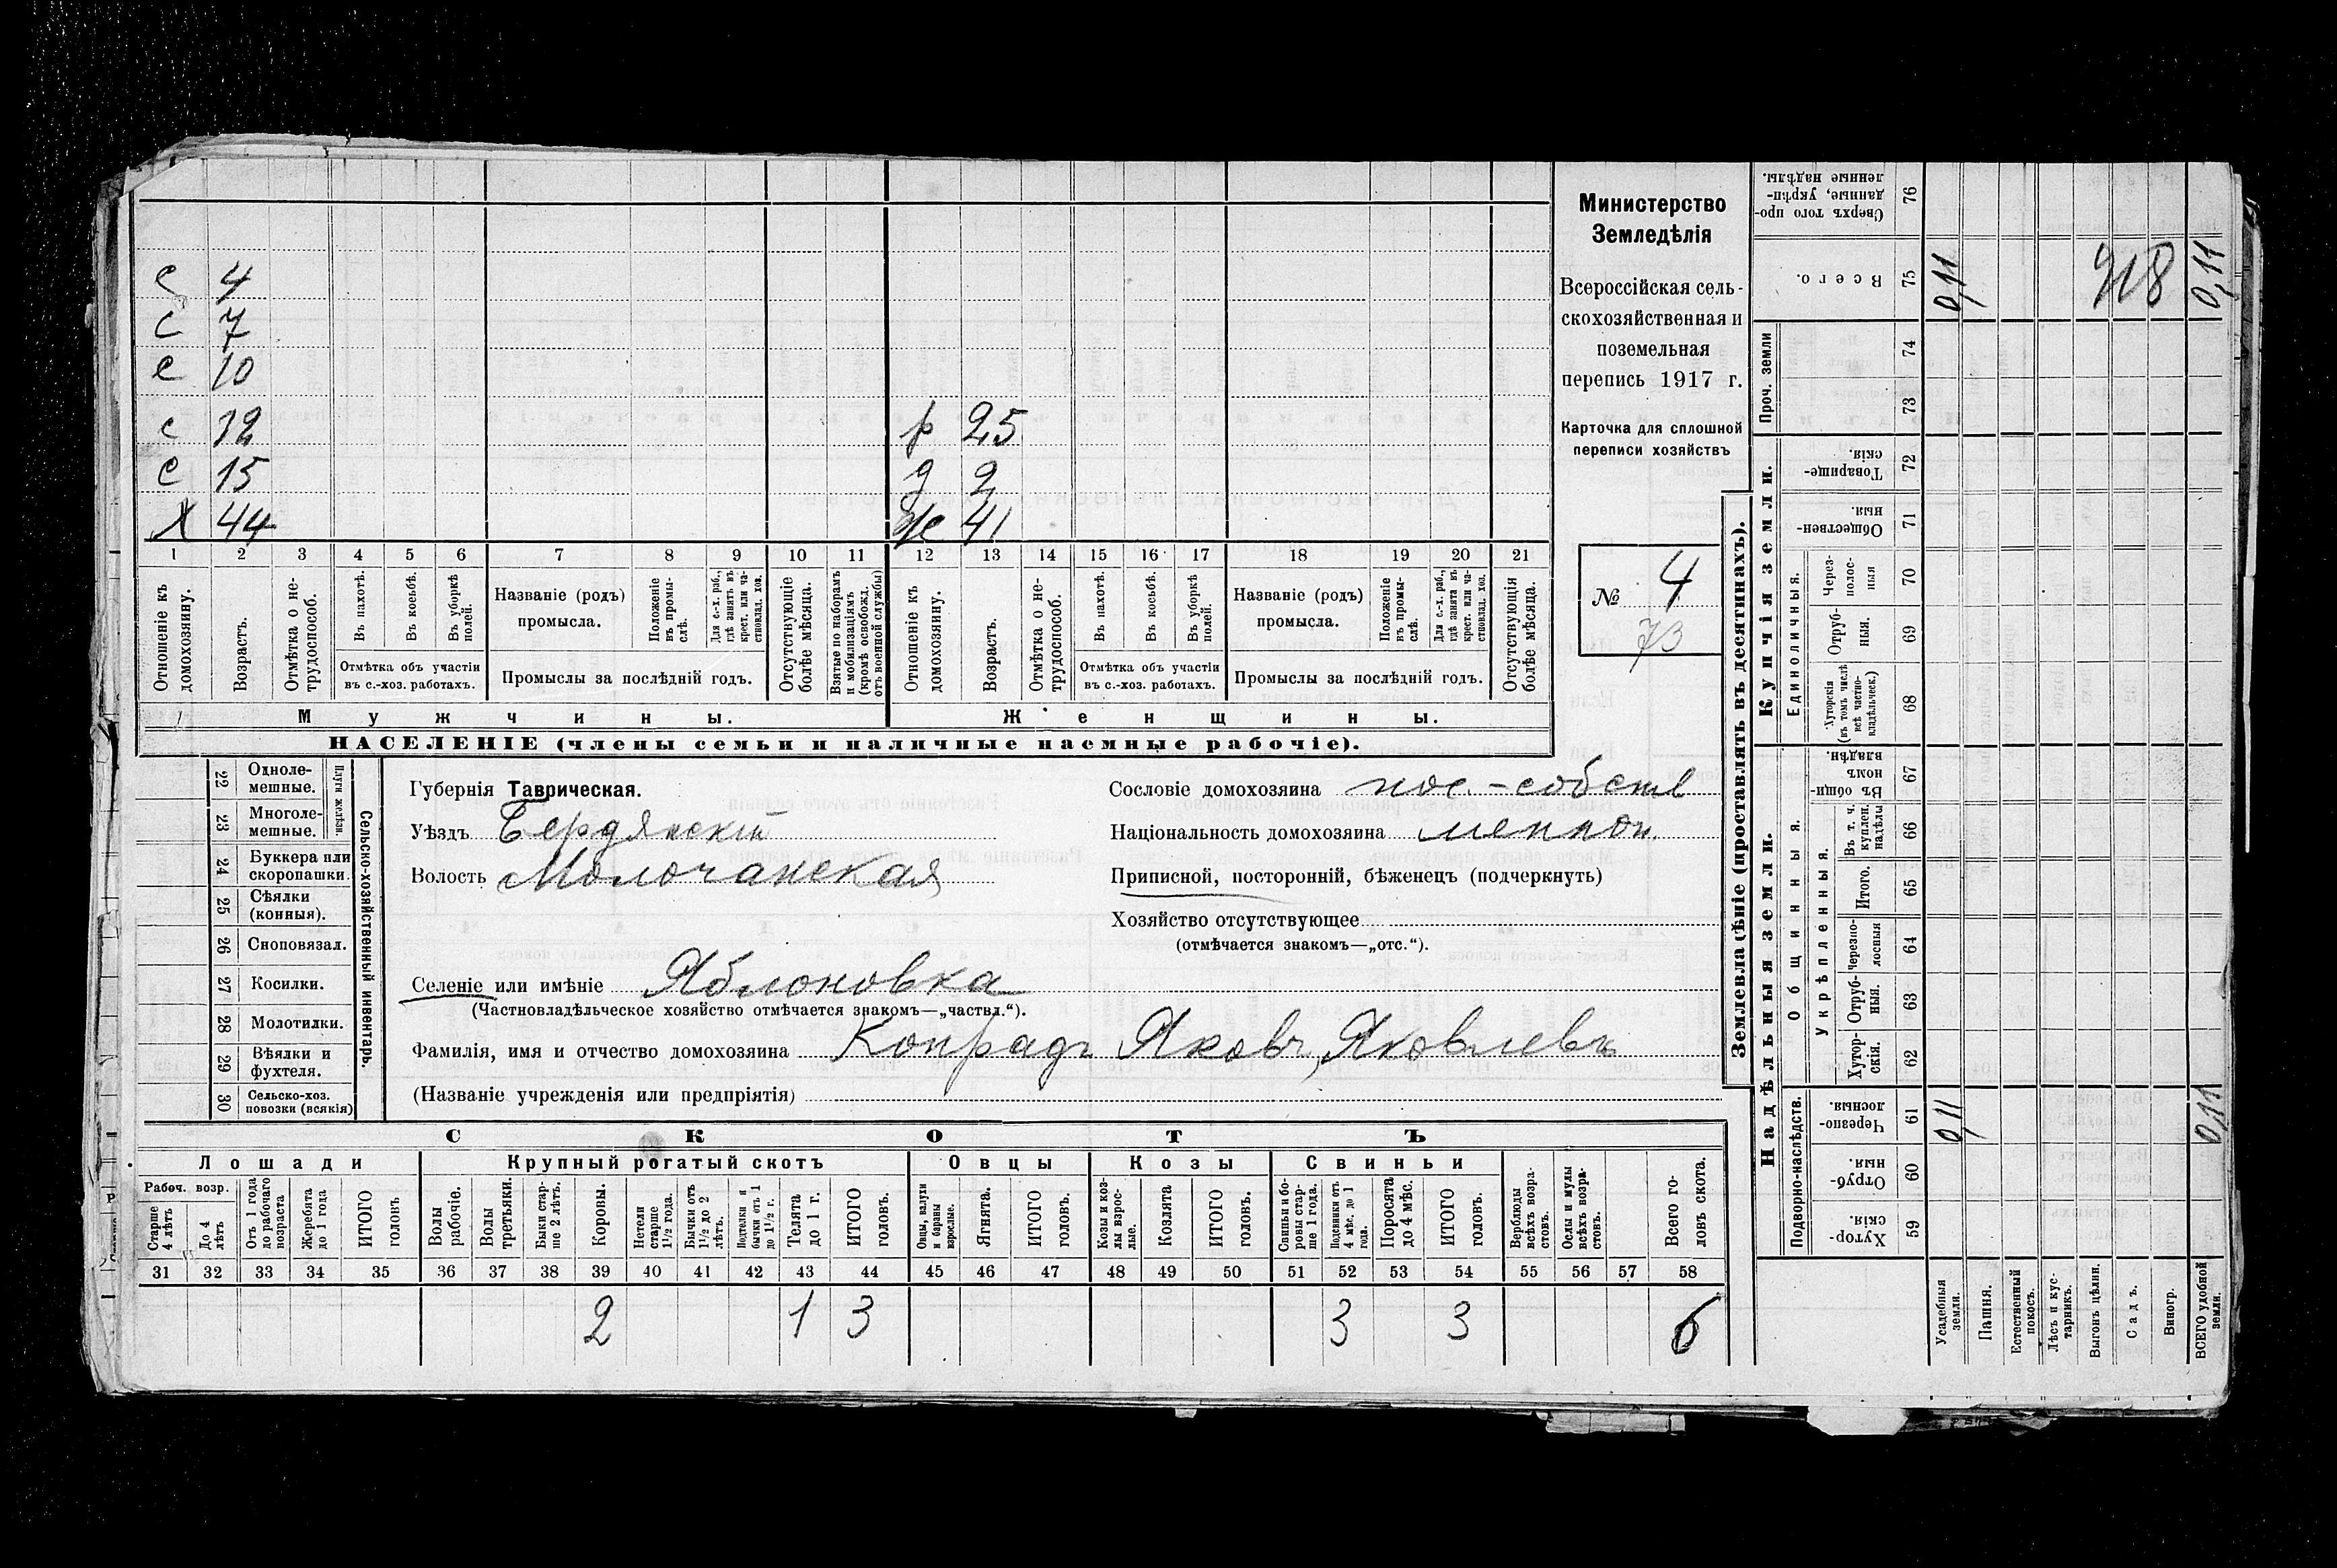 с 4
с 7
с 10
с 12 р 25
с 15 д 2
х 44 же 41
1 2 3 4 5 6 7 8 9 10 11 12 13 14 15 16 17 18 19 20 21
Отношеніе къ домохозяину.
Возрастъ.
Отмѣтка о нетрудоспособ.
Въ пахотѣ.
Въ косьбѣ.
Въ уборкѣ полей.
Отмѣтка объ участіи
въ с.-хоз. работахъ.
Названіе (родъ)
промысла.
Положеніе въ промыслѣ.
Для с.-х. раб., гдѣ занятъ въ крест. или частновлад. хоз.
Промыслы за послѣдній годъ.
Отсутствующіе болѣе мѣсяца.
Взятые по наборамъ и мобилизаціямъ (кромѣ освобожд. отъ военной службы)
Отношеніе къ домохозяину.
Возрастъ.
Отмѣтка о нетрудоспособ.
Въ пахотѣ.
Въ косьбѣ.
Въ уборкѣ полей.
Отмѣтка объ участіи
въ с.-хоз. работахъ.
Названіе (родъ)
промысла.
Положеніе въ промыслѣ.
Для с.-х. раб., гдѣ занята въ крест. или частновлад. хоз.
Промыслы за послѣдній годъ.
Отсутствующія болѣе мѣсяца.
Мужчины.
Женщины.
НАСЕЛЕНІЕ (члены семьи и наличные наемные рабочіе).
Министерство
Земледѣлія
Всероссійская сель-
скохозяйственная и
поземельная
перепись 1917 г.
Карточка для сплошной
переписи хозяйствъ
№ 4
73
22 Одноле-
мешные.
23 Многоле-
мешные.
Плуги желѣзн.
24 Буккера или
скоропашки.
25 Сѣялки
(конныя).
26 Сноповязал.
27 Косилки.
28 Молотилки.
29 Вѣялки и
фухтеля.
30 Сельско-хоз.
повозки (всякія)
Сельско-хозяйственный инвентарь.
Губернія Таврическая.
Уѣздъ Бердянскій
Волость Молочанская
Сословіе домохозяина пос.-собств
Національность домохозяина меннон.
Приписной, посторонній, бѣженецъ (подчеркнуть)
Хозяйство отсутствующее
(отмѣчается знакомъ—„отс.“).
Селеніе или имѣніе Яблоновка
(Частновладѣльческое хозяйство отмѣчается знакомъ—„частвл.“).
Фамилія, имя и отчество домохозяина Конрадъ Яковъ Яковлевъ
(Названіе учрежденія или предпріятія)
СКОТЪ
Лошади
Крупный рогатый скотъ
Овцы
Козы
Свиньи
Рабоч. возр.
Старше 4 лѣтъ
До 4 лѣтъ
Отъ 1 года до рабочаго возраста
Жеребята до 1 года
ИТОГО головъ
Волы рабочіе.
Волы третьяки.
Быки старше 2 лѣтъ.
Коровы.
Нетели старше 1½ года.
Бычки отъ 1½ до 2 лѣтъ.
Подтелки и бычки отъ 1 до 1½ г.
Телята до 1 г.
ИТОГО головъ.
Овцы, валухи и бараны взрослые.
Ягнята.
ИТОГО головъ.
Козы и козлы взрослые.
Козлята
ИТОГО головъ.
Свиньи и боровы старше 1 года.
Подсвинки отъ 4 мѣс. до 1 года.
Поросята до 4 мѣс.
ИТОГО головъ.
Верблюды всѣхъ возрастовъ.
Ослы и мулы всѣхъ возрастовъ.
Всего головъ скота.
31 32 33 34 35 36 37 38 39 40 41 42 43 44 45 46 47 48 49 50 51 52 53 54 55 56 57 58
2 1 3 3 3 6
Землевладѣніе (проставлять въ десятинахъ).
Купчія земли.
Надѣльныя земли.
Сверхъ того проданные, укрѣпленные надѣлы. 76
Всего. 75 0,11 918 0,11
Проч. земли
74
73
Товарищескія. 72
Общественныя. 71
Единоличныя.
Черезполосныя 70
Отрубныя. 69
Хуторскія (въ томъ числѣ всѣ частновладѣльческ.) 68
Общинныя.
Въ общинномъ владѣн. 67
Укрѣпленныя.
Въ т. ч. куплен. надѣлы 66
Итого. 65
Черезполосныя 64
Отрубныя. 63
Хуторскія. 62
Подворно-наслѣдств.
Черезполосныя. 61 0,11 0,11
Отрубныя. 60
Хуторскія. 59
Усадебныя земли.
Пашня.
Естественный покосъ.
Лѣсъ и кустарникъ.
Выгонъ цѣлин.
Садъ.
Виногр.
ВСЕГО удобной земли.